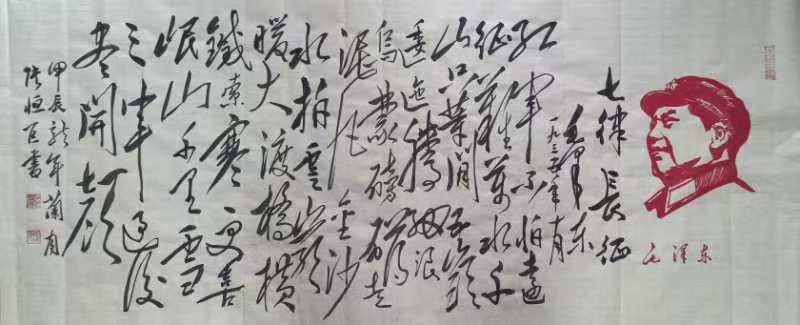 毛泽东
七律 長征
毛泽东
一九三五年十月
红军不怕遠
征難萬水千
山只等闲五嶺
逶迤腾细浪
乌蒙磅礴走
泥丸金沙
水拍雲崖
暖大渡橋横
鐵索寒更喜
岷山千里雪
三军過後
尽開颜
甲辰龙年蘭月
张恒 書